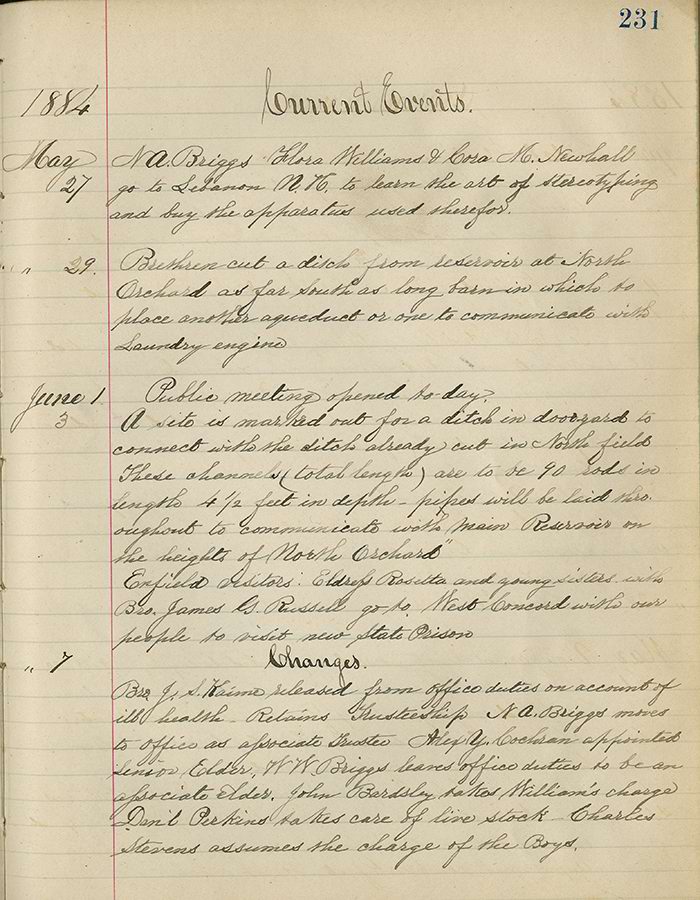 231
1884
Current Events.
May
27
N A. Briggs Flora Williams & Cora M. Newhall
go to Lebanon N. H. to learn the art of stereotyping
and buy the apparatus used therefor.
" 29.
Brethren cut a ditch from reservoir at North
Orchard as far South as long barn in which to
place another aqueduct or one to communicate with
Laundry engine
June 1.
Public meeting opened to-day.
3
A site is marked out for a ditch in dooryard to
connect with the ditch already cut in North field
These channels (total length) are to be 90 rods in
length 4 1/2 feet in depth - pipes will be laid thro
oughout to communicate with main Reservoir on
the heights of North Orchard"
Enfield visitors: Eldress Rosetta and young sisters with
Bro. James G. Russell go to West Concord with our
people to visit new State Prison
" 7
Changes.
Bro J. S. Kaime released from office duties on account of
ill health - Retains Trusteeship N A. Briggs moves
to office as associate Trustee Alex Y. Cochran appointed
senior Elder, W W Briggs leaves office duties to be an
associate elder. John Bardsley takes William's charge
Dan'l Perkins takes care of live stock - Charles
Stevens assumes the charge of the Boys.